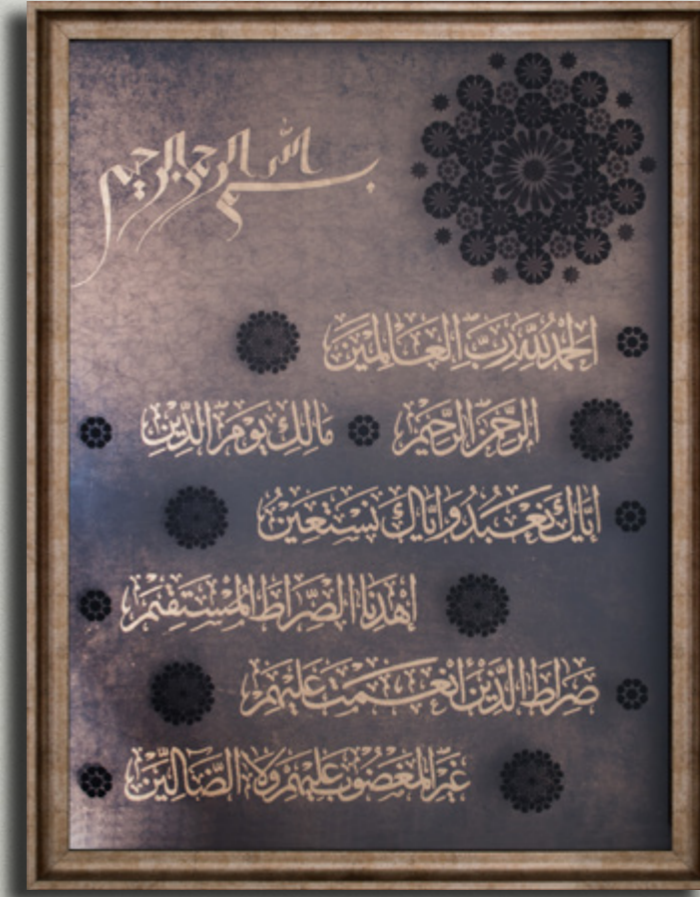 بسم الله الرحمن الرحيم
الحمد لله رب العالمين
الرحمن الرحيم مالك يوم الدين
إياك نعبد وإياك نستعين
اهدنا الصراط المستقيم
صراط الذين أنعمت عليهم
غير المغضوب عليهم ولا الضالين